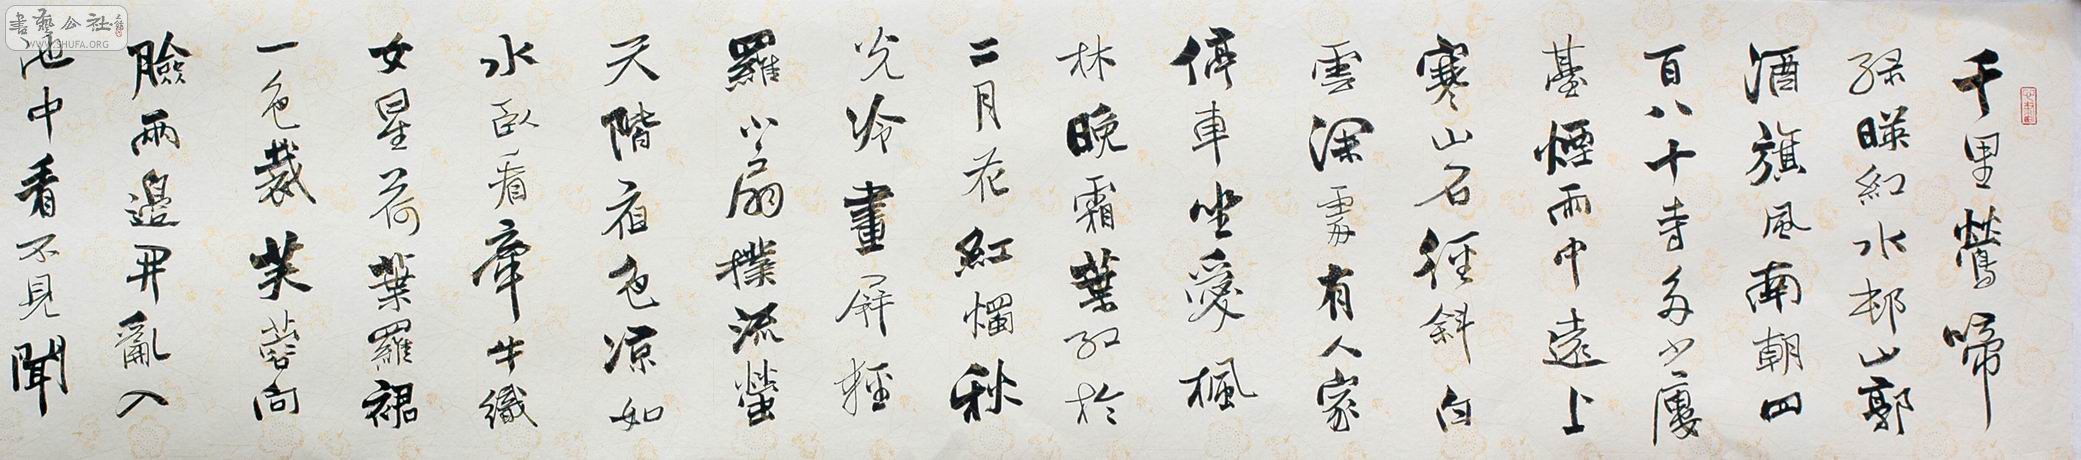 千里鶯啼
綠暎紅水邨山郭
酒旗風南朝四
百八十寺多少樓
臺煙雨中遠上
寒山石徑斜白
雲深處有人家
停車坐愛楓
林晚霜葉紅於
二月花紅燭秋
光冷畫屏輕
羅小扇撲流螢
天階夜色涼如
水臥看牽牛織
女星荷葉羅裙
一色裁芙蓉向
臉兩邊開亂入
池中看不見聞
書藝公社
WWW.SHUFA.ORG